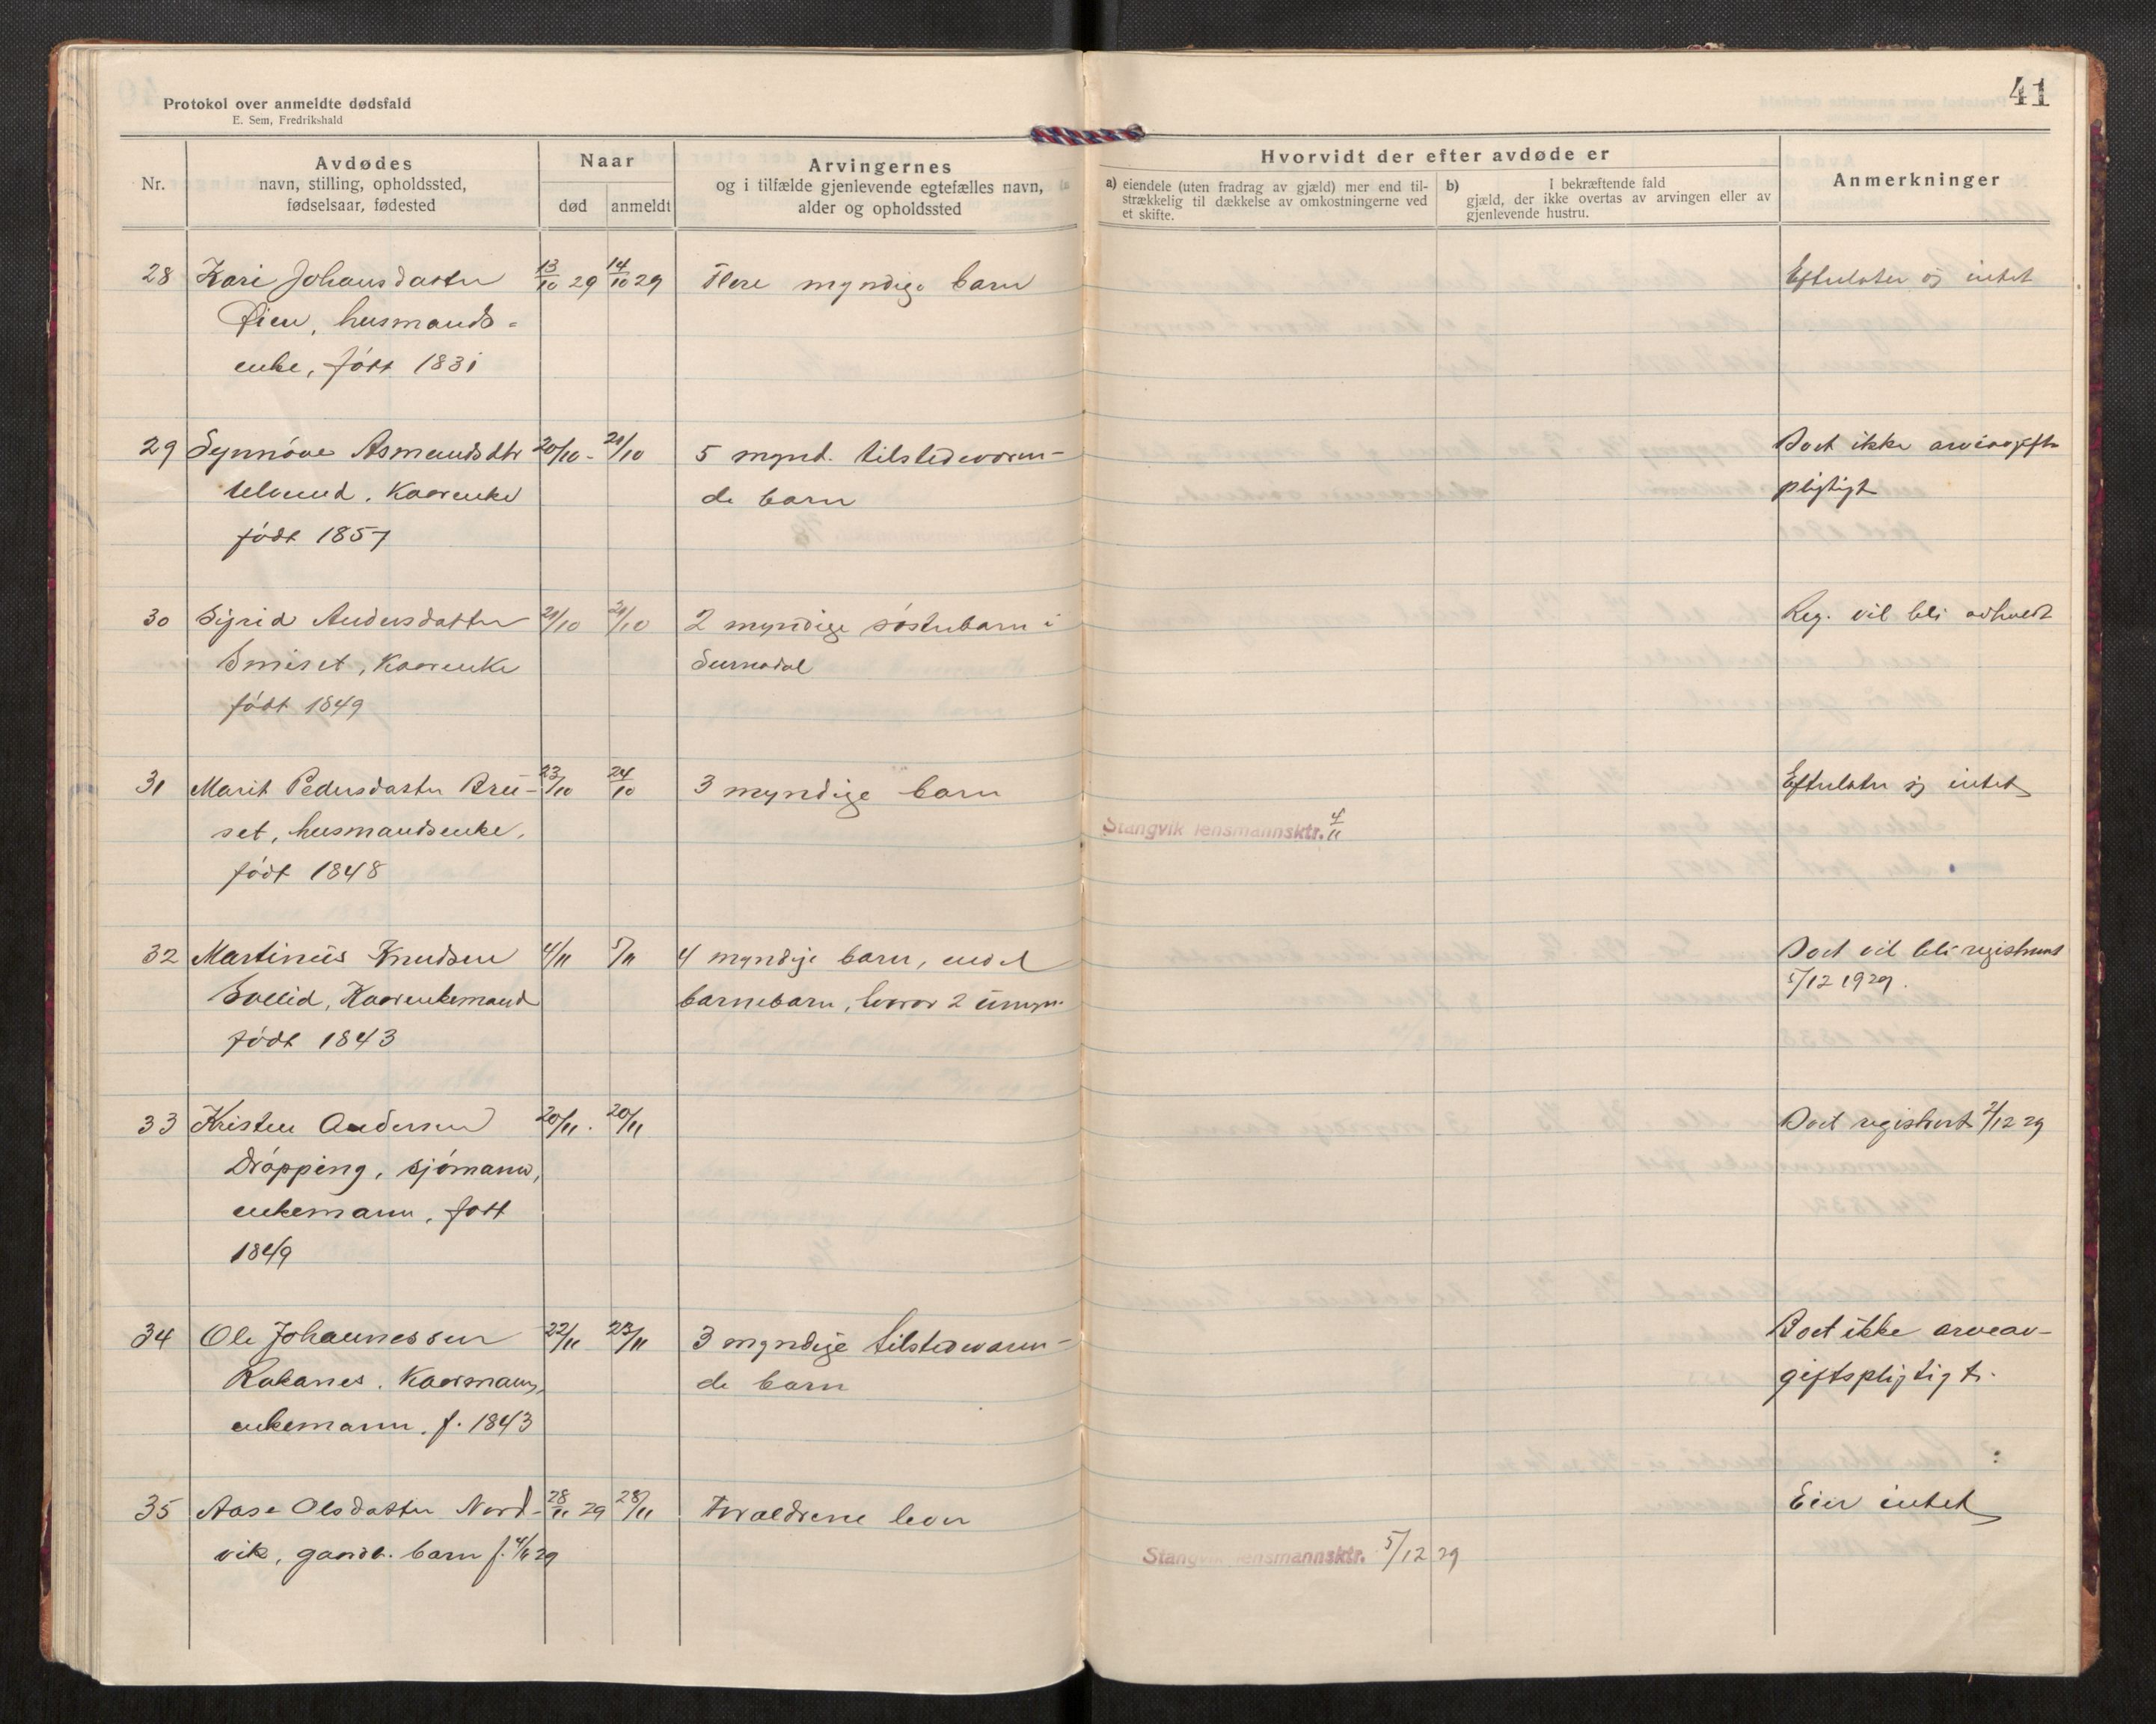 41
Protokol over anmeldte dødsfald
E. Sem, Fredrikshald
Nr.
Avdødes
navn, stilling, opholdssted,
fødselsaar, fødested
Naar
død
anmeldt
Arvingernes
og i tilfælde gjenlevende egtefælles navn,
alder og opholdssted
Hvorvidt der efter avdøde er
a) eiendele (uten fradrag av gjæld) mer end til-
strækkelig til dækkelse av omkostningerne ved
et skifte.
b) I bekræftende fald
gjæld, der ikke overtas av arvingen eller av
gjenlevende hustru.
Anmerkninger
28 Kari Johansdatter 13/10 29 14/10 29 Flere myndige barn Efterlater sig intet
Øien, husmands-
enke, født 1831
29 Synnøve Asmundsdtr 20/10 - 21/10 5 mynd. tilstedeværen- Boet ikke arveavgifts
Ulvund. Kaarenke de barn pligtigt
født 1857
30 Sigrid Andersdatter 21/10 21/10 2 myndige søsterbarn i Reg. vil bli avholdt
Smiset, Kaarenke Surnadal
født 1849
31 Marit Pedersdatter Brü- 23/10 24/10 3 myndige barn Efterlater sig intet
set, husmandsenke, Stangvik lensmannsktr. 4/11
født 1848
32 Martinus Knudsen 4/11 5/11 4 myndige barn, endel Boet vil bli registrert
Sollid, Kaarenkemand barnebarn, hvorav 2 umyn. 5/12 1929.
født 1843
33 Kristen Andersen 20/11. 20/11 Boet registrert 2/12 29
Drøpping, sjømann,
enkemann, født
1849
34 Ole Johannessen 22/11 23/11 3 myndige tilstedeværen- Boet ikke arveav-
Rakanes. Kaarmann, de barn giftspligtigt.
enkemann. f. 1843
35 Aase Olsdatter Nord- 28/11 29 28/11 Forældrene lever Eier intet
vik, gaardb. barn f. 4/6 29 Stangvik lensmannsktr. 5/12 29